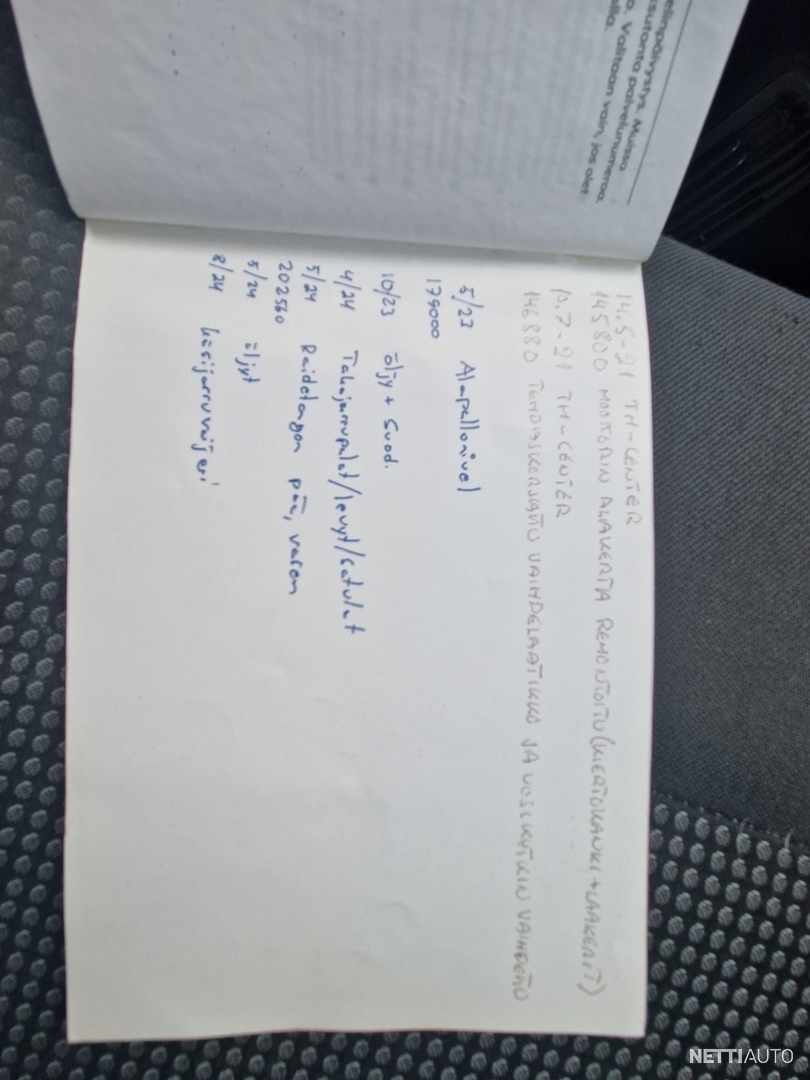 elinpäivystys. Muissa
. Vianta palvelunumeroa
Valitaan vain, jos olet
14.5-21 TH-CENTER
145800 MOOTTORIN ALAKERTA REMONTOITU (KIERTOKANKI + LAAKERIT)
10.7-21 TH-CENTER
146880 TEHDASKORJATTU VAIHDELAATIKKO JA UUSI KYTKIN VAIHDETTU
5/23 Alapallonivel
179000
10/23 öljy + Suod.
4/24 Takajarrupalat/levyt/satulat
5/24 Raidetangon pää, vasen
202560
5/24 öljyt
8/24 käsijarruvaijeri
NETTIAUTO